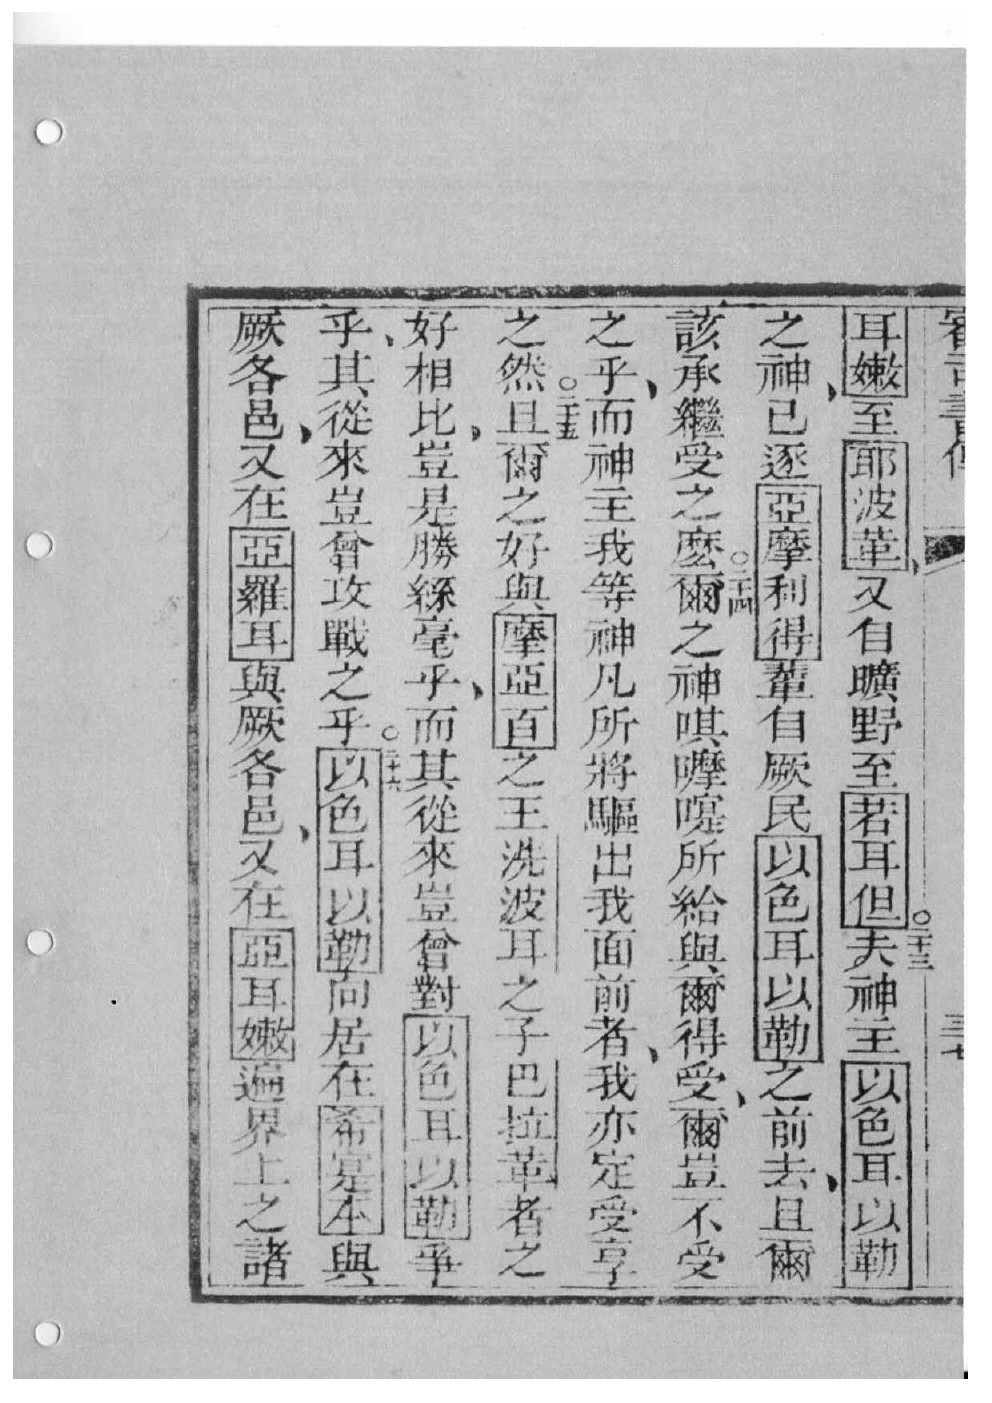 審司書傳
三七
耳嫩至耶波革、又自曠野至若耳但。二十三夫神主以色耳以勒
之神、已逐亞摩利得輩自厥民以色耳以勒之前去、且爾
該承繼受之麽。二十四爾之神唭嚤㗭所給與爾得受、爾豈不受
之乎、而神主我等神凡所將驅出我面前者、我亦定受享
之然。二十五且爾之好與摩亞百之王洗波耳之子巴拉革者之
好相比、豈是勝絲毫乎、而其從來豈曾對以色耳以勒爭
乎、其從來豈曾攻戰之乎。二十六以色耳以勒向居在希寔本與
厥各邑、又在亞羅耳與厥各邑、又在亞耳嫩遍界上之諸